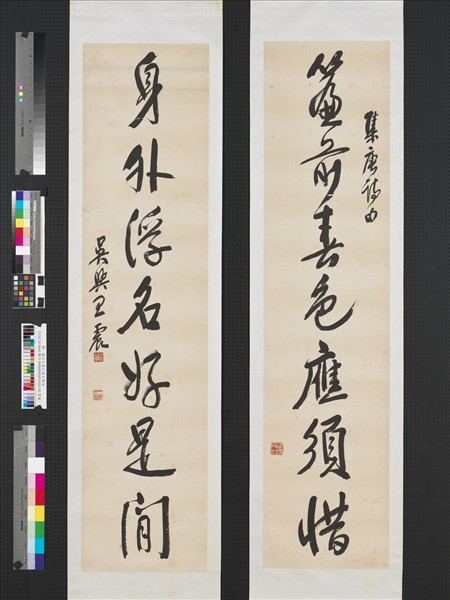 集唐詩句
簾前春色應須惜
身外浮名好是閒
吳興王震